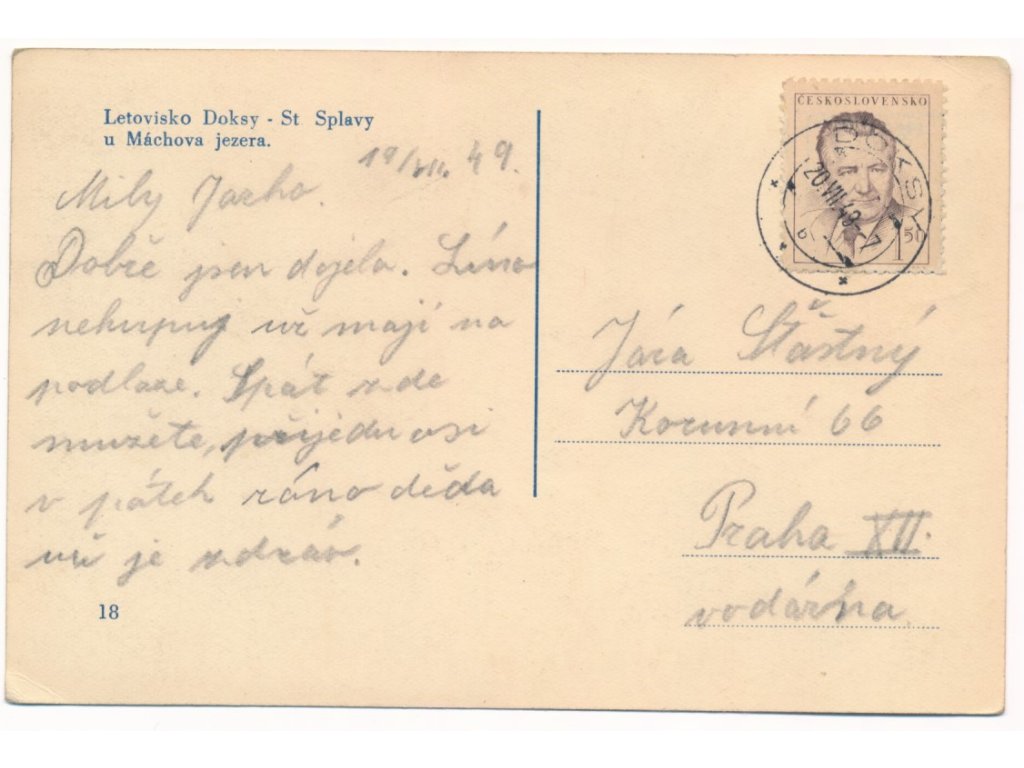 Letovisko Doksy - St Splavy
u Máchova jezera.
19/VII. 49.
Milý Jarko.
Dobře jsen dojela. Lína
nekupuj už mají na
podlaze. Spát zde
muzěte, přijedu asi
v pátek ráno děda
už je zdráv.
18
ČESKOSLOVENSKO
1 50
DOKSY
20.VII.49-7
Jára Šťastný
Korunní 66
Praha XII.
vodárna.